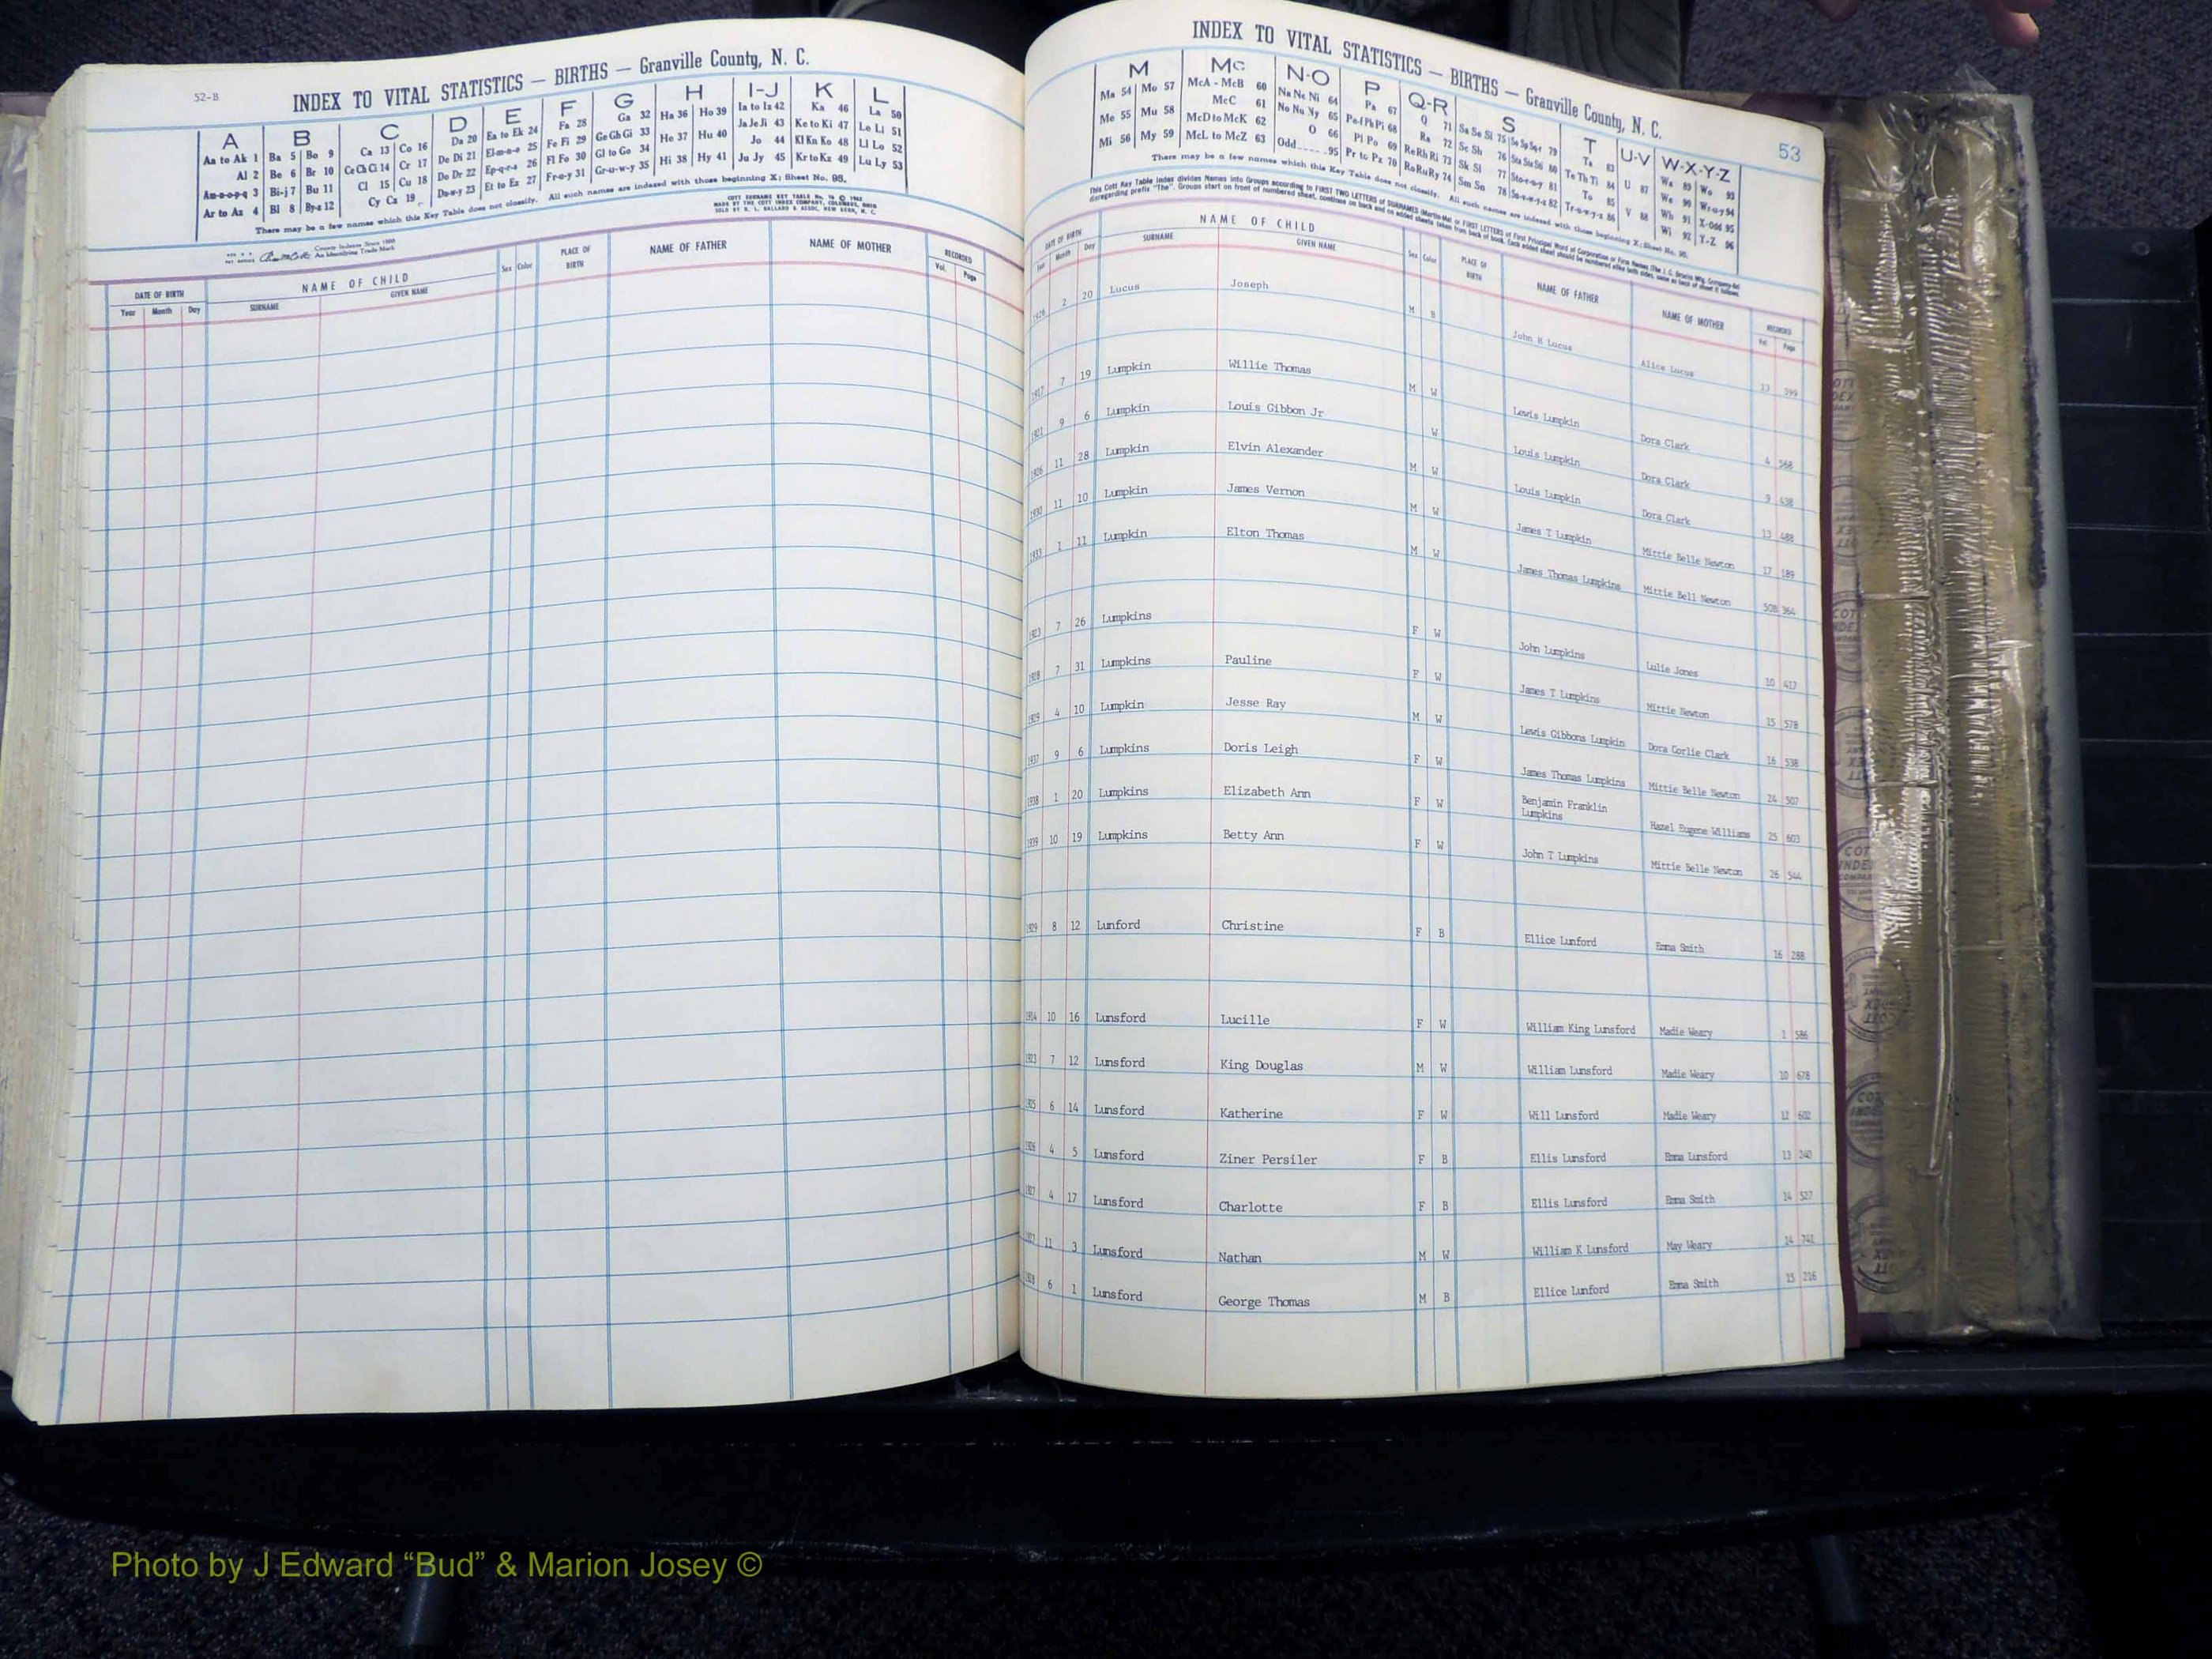 52-B
INDEX TO VITAL STATISTICS — BIRTHS — Granville County, N. C.
A B C D E F G H I-J K L
Aa to Ak 1 Ba 5 Bo 9 Ca 13 Co 16 Da 20 Ea to Ek 24 Fa 28 Ga 32 Ha 36 Ho 39 Ia to Iz 42 Ka 46 La 50
Al 2 Be 6 Br 10 Ce Ch Ci 14 Cr 17 De Di 21 El-m-n-o 25 Fe Fi 29 Ge Gh Gi 33 He 37 Hu 40 Ja Je Ji 43 Ke to Ki 47 Le Li 51
Am-n-o-p-q 3 Bi-j 7 Bu 11 Cl 15 Cu 18 Do Dr 22 Ep-q-r-s 26 Fl Fo 30 Gl to Go 34 Hi 38 Hy 41 Jo 44 Kl Kn Ko 48 Ll Lo 52
Ar to Az 4 Bl 8 By-z 12 Cy Cz 19 Du-w-y 23 Et to Ez 27 Fr-u-y 31 Gr-u-w-y 35 Ju Jy 45 Kr to Kz 49 Lu Ly 53
There may be a few names which this Key Table does not classify. All such names are indexed with those beginning X; Sheet No. 95.
County Indexes Since 1888
An Identifying Trade Mark
DATE OF BIRTH NAME OF CHILD Sex Color PLACE OF BIRTH NAME OF FATHER NAME OF MOTHER RECORDED
Year Month Day SURNAME GIVEN NAME Vol. Page
INDEX TO VITAL STATISTICS — BIRTHS — Granville County, N. C.
53
M Mc N-O P Q-R S T U-V W-X-Y-Z
Ma 54 Mo 57 McA - McB 60 Na Ne Ni 64 Pa 67 Q 71 Sa Se Si 75 Ta 83 U 87 Wa 89 Wo 93
Me 55 Mu 58 McC 61 No Nu Ny 65 Pe-f Ph Pi 68 Ra 72 Sc Sh 76 Te Th Ti 84 V 88 We 90 Wr-u-y 94
Mi 56 My 59 McD to McK 62 O 66 Pl Po 69 Re Rh Ri 73 Sk Sl 77 To 85 Wh 91 X-Odd 95
McL to McZ 63 Odd 95 Pr to Pz 70 Ro Ru Ry 74 Sm Sn 78 Tr-u-w-y-z 86 Wi 92 Y-Z 96
There may be a few names which this Key Table does not classify. All such names are indexed with those beginning X; Sheet No. 95.
DATE OF BIRTH NAME OF CHILD Sex Color PLACE OF BIRTH NAME OF FATHER NAME OF MOTHER RECORDED
Year Month Day SURNAME GIVEN NAME Vol. Page
1926 2 20 Lucus Joseph M B John H Lucus Alice Lucus 13 599
1917 7 19 Lumpkin Willie Thomas M W Lewis Lumpkin Dora Clark 4 568
1921 9 6 Lumpkin Louis Gibbon Jr W Louis Lumpkin Dora Clark 9 438
1926 11 28 Lumpkin Elvin Alexander M W Louis Lumpkin Dora Clark 13 488
1930 11 10 Lumpkin James Vernon M W James T Lumpkin Mittie Belle Newton 17 189
1933 1 11 Lumpkin Elton Thomas M W James Thomas Lumpkins Mittie Bell Newton 50B 364
1923 7 26 Lumpkins F W John Lumpkins Lulie Jones 10 417
1928 7 31 Lumpkins Pauline F W James T Lumpkins Mittie Newton 15 578
1929 4 10 Lumpkin Jesse Ray M W Lewis Gibbons Lumpkin Dora Corlie Clark 16 538
1937 9 6 Lumpkins Doris Leigh F W James Thomas Lumpkins Mittie Belle Newton 24 507
1938 1 20 Lumpkins Elizabeth Ann F W Benjamin Franklin Lumpkins Hazel Eugene Williams 25 603
1939 10 19 Lumpkins Betty Ann F W John T Lumpkins Mittie Belle Newton 26 544
1929 8 12 Lunford Christine F B Ellice Lunford Emma Smith 16 288
1914 10 16 Lunsford Lucille F W William King Lunsford Madie Weary 1 586
1923 7 12 Lunsford King Douglas M W William Lunsford Madie Weary 10 678
1925 6 14 Lunsford Katherine F W Will Lunsford Madie Weary 12 602
1926 4 5 Lunsford Ziner Persiler F B Ellis Lunsford Emma Lunsford 13 240
1927 4 17 Lunsford Charlotte F B Ellis Lunsford Emma Smith 14 527
1927 11 3 Lunsford Nathan M W William K Lunsford May Weary 14 741
1928 6 1 Lunsford George Thomas M B Ellice Lunford Emma Smith 15 216
Photo by J Edward “Bud” & Marion Josey ©